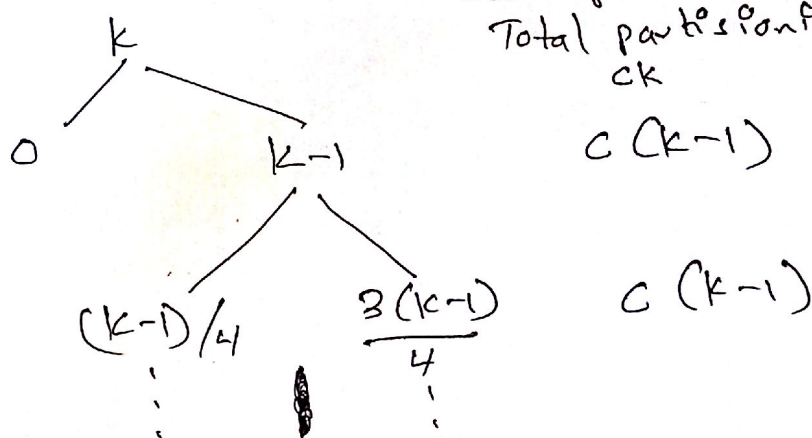 k
Total partisioni
ck
0
k-1
c (k-1)
(k-1)/4
3(k-1)
4
c (k-1)